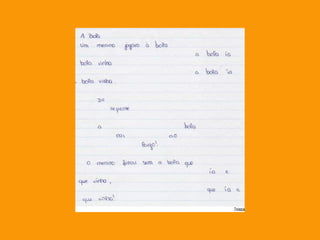 A bola
Um menino jogava à bola
a bola ia
bola vinha
a bola ia
bola vinha.
De
repente
a bola
cai ao
fosso!
O menino ficou sem a bola que
ia e
que vinha,
que ia e
que vinha!